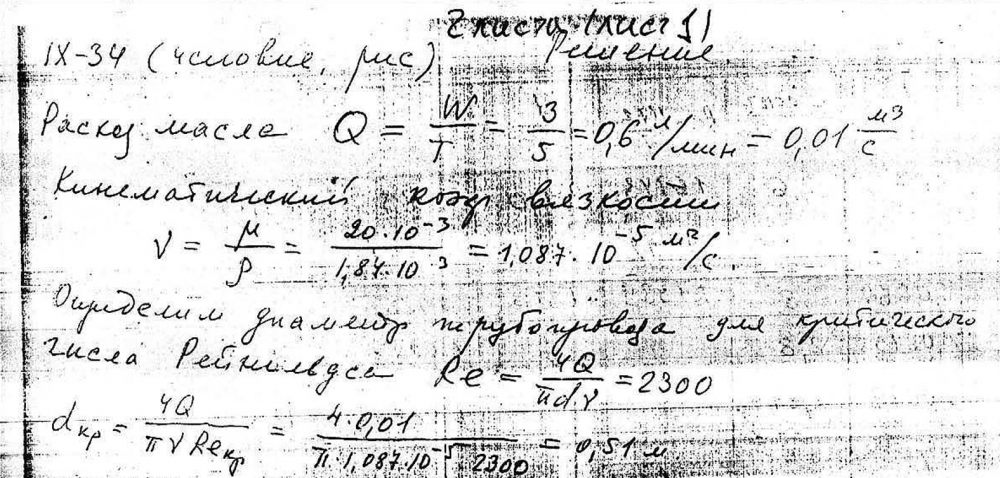 2 листа (лист 1)
IX-34 (условие, рис) Решение
Расход масла Q = W/T = 3/5 = 0,6 м³/мин = 0,01 м³/с
Кинематический коэф вязкости
ν = μ/ρ = 20·10⁻³/1,84·10³ = 1,087·10⁻⁵ м²/с.
Определим диаметр трубопровода для критического
числа Рейнольдса Re = 4Q/πdν = 2300
dкр = 4Q/πνReкр = 4·0,01/π·1,087·10⁻⁵ 2300 = 0,51 м